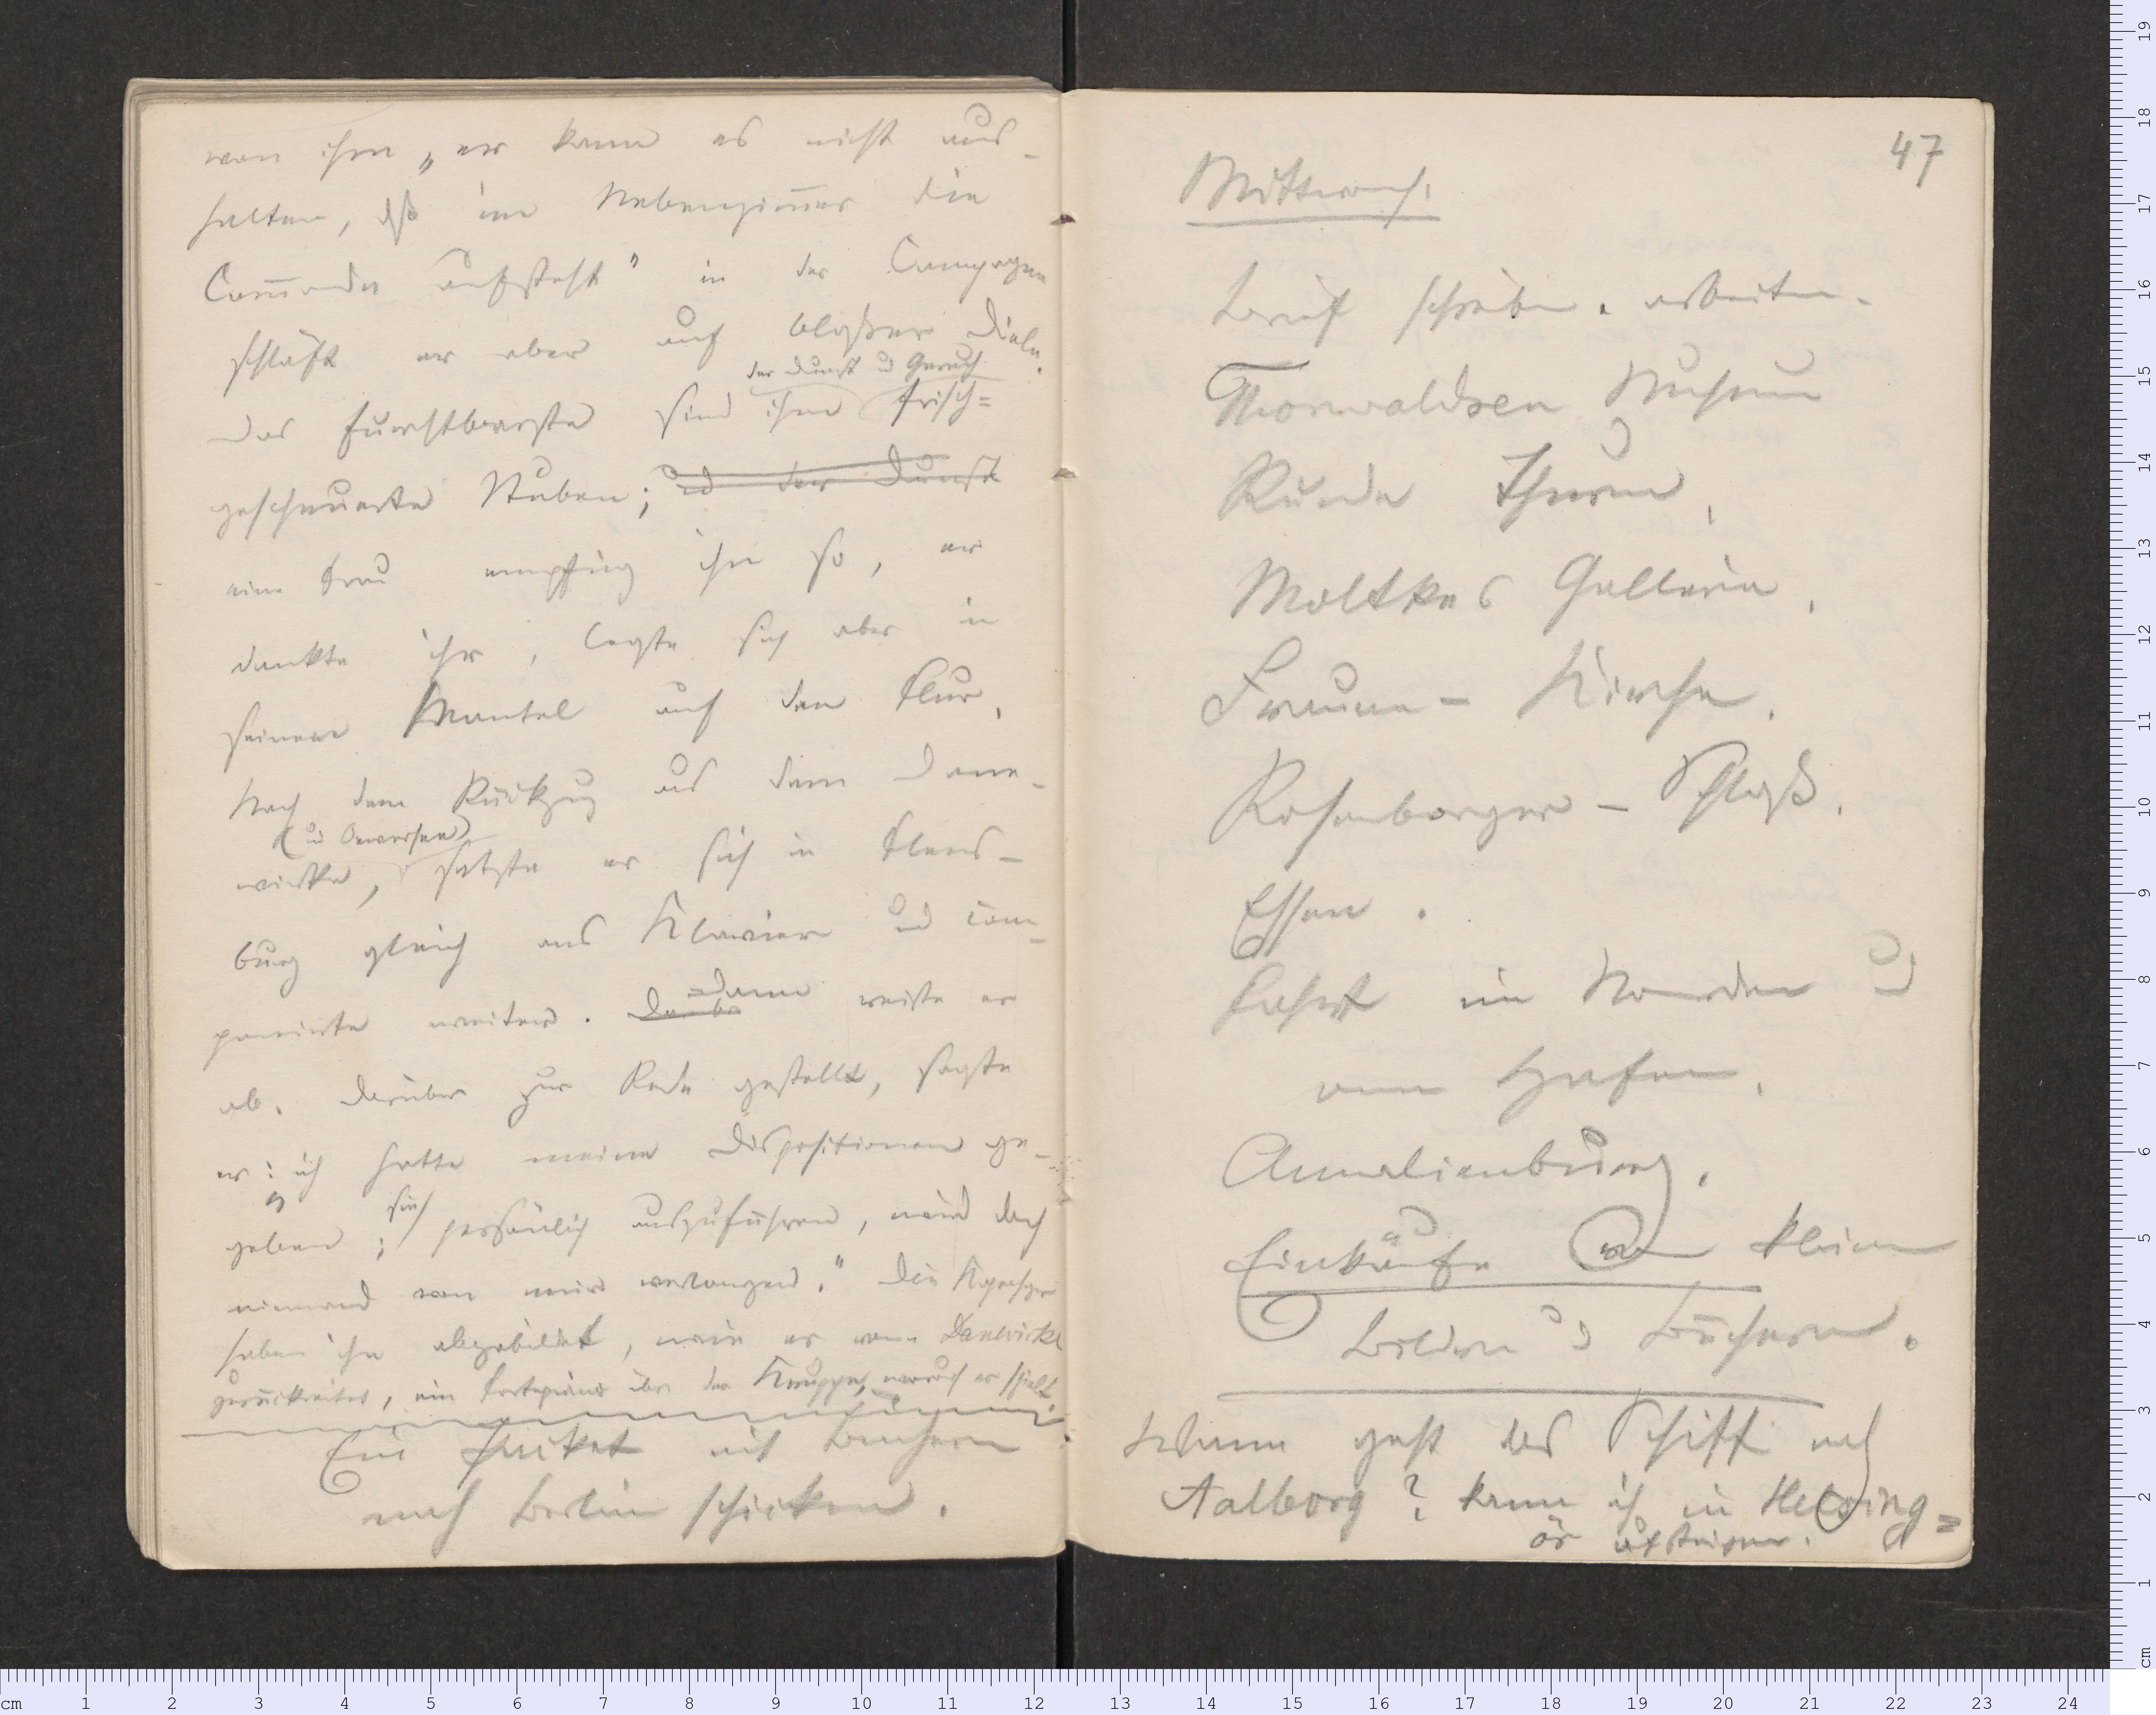 von ihm „er kann es nicht aus-
halten, dß im Nebenzim̄er die
Com̄ode aufsteht" in der Campagne
schläft er aber auf bloßer Diele.
der Dunst ud Geruch
Das furchtbarste sind ihm frisch=
gescheuerte Stuben; ud der Dunst
eine Frau empfing ihn so, er
dankte ihr, legte sich aber in
seinem Mantel auf den Flur.
Nach dem Rückzug aus dem Dane-
(ud Oeversee)
wirke, setzte er sich in Flens-
burg gleich ans Klavier ud com-
ponirte weiter. Dann reiste er
ab. Darüber zur Rede gestellt, sagte
er: „ich hatte meine Dispositionen ge-
geben; sie persönlich auszuführen, wird doch
niemand von mir verlangen." Die Kopenhgr
haben ihn abgebildet, wie er vom Danevirke
zurückreitet, ein Fortepiano über der Kruppe, worauf er spielt.
Ein Packet mit Büchern
nach Berlin schicken.
47
Mittwoch.
Brief schreiben. arbeiten.
Thorwaldsen Museum
Runde Thurm.
Moltkes Gallerie.
Frauen-Kirche.
Rosenborger-Schloß.
Essen.
Fahrt im Norden ud
am Hafen.
Amalienburg.
Einkäufe von kleinen
Bildern ud Büchern.
Wann geht das Schiff nach
Aalborg? kann ich in Helsing=
ör aussteigen.